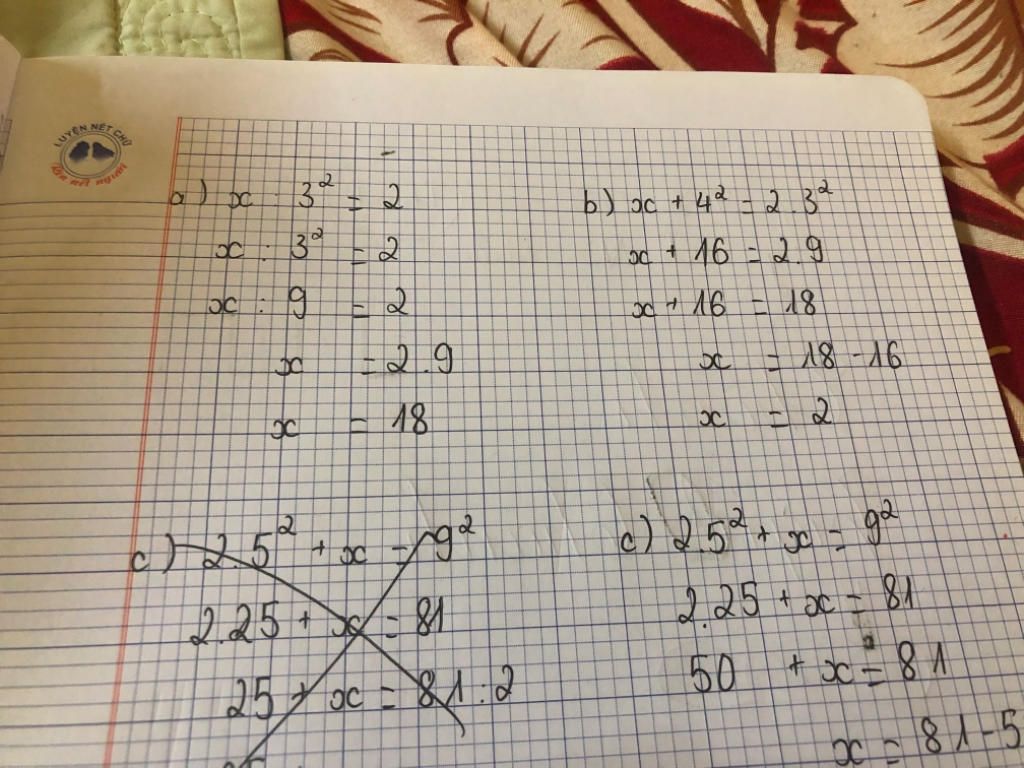 LUYỆN NÉT CHỮ
Rèn nết người
a) x : 3² = 2
x : 3² = 2
x : 9 = 2
x = 2.9
x = 18
b) x + 4² = 2.3²
x + 16 = 2.9
x + 16 = 18
x = 18 - 16
x = 2
c) 2.5² + x = 9²
2.25 + x = 81
25 + x = 81:2
c) 2.5² + x = 9²
2.25 + x = 81
50 + x = 81
x = 81 - 5